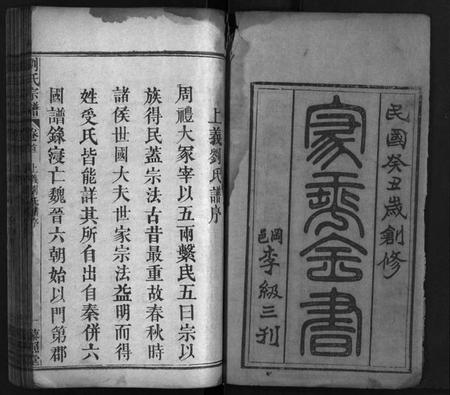 民國癸丑歲創修
家乘全書
岡邑李級三刊
上義劉氏譜序
周禮大冢宰以五兩繫民五曰宗以
族得民蓋宗法古昔最重故春秋時
諸侯世國大夫世家宗法益明而得
姓受氏皆能詳其所自出自秦併六
國譜錄寖亡魏晉六朝始以門第郡
劉氏宗譜 卷首 上義劉氏譜序 一